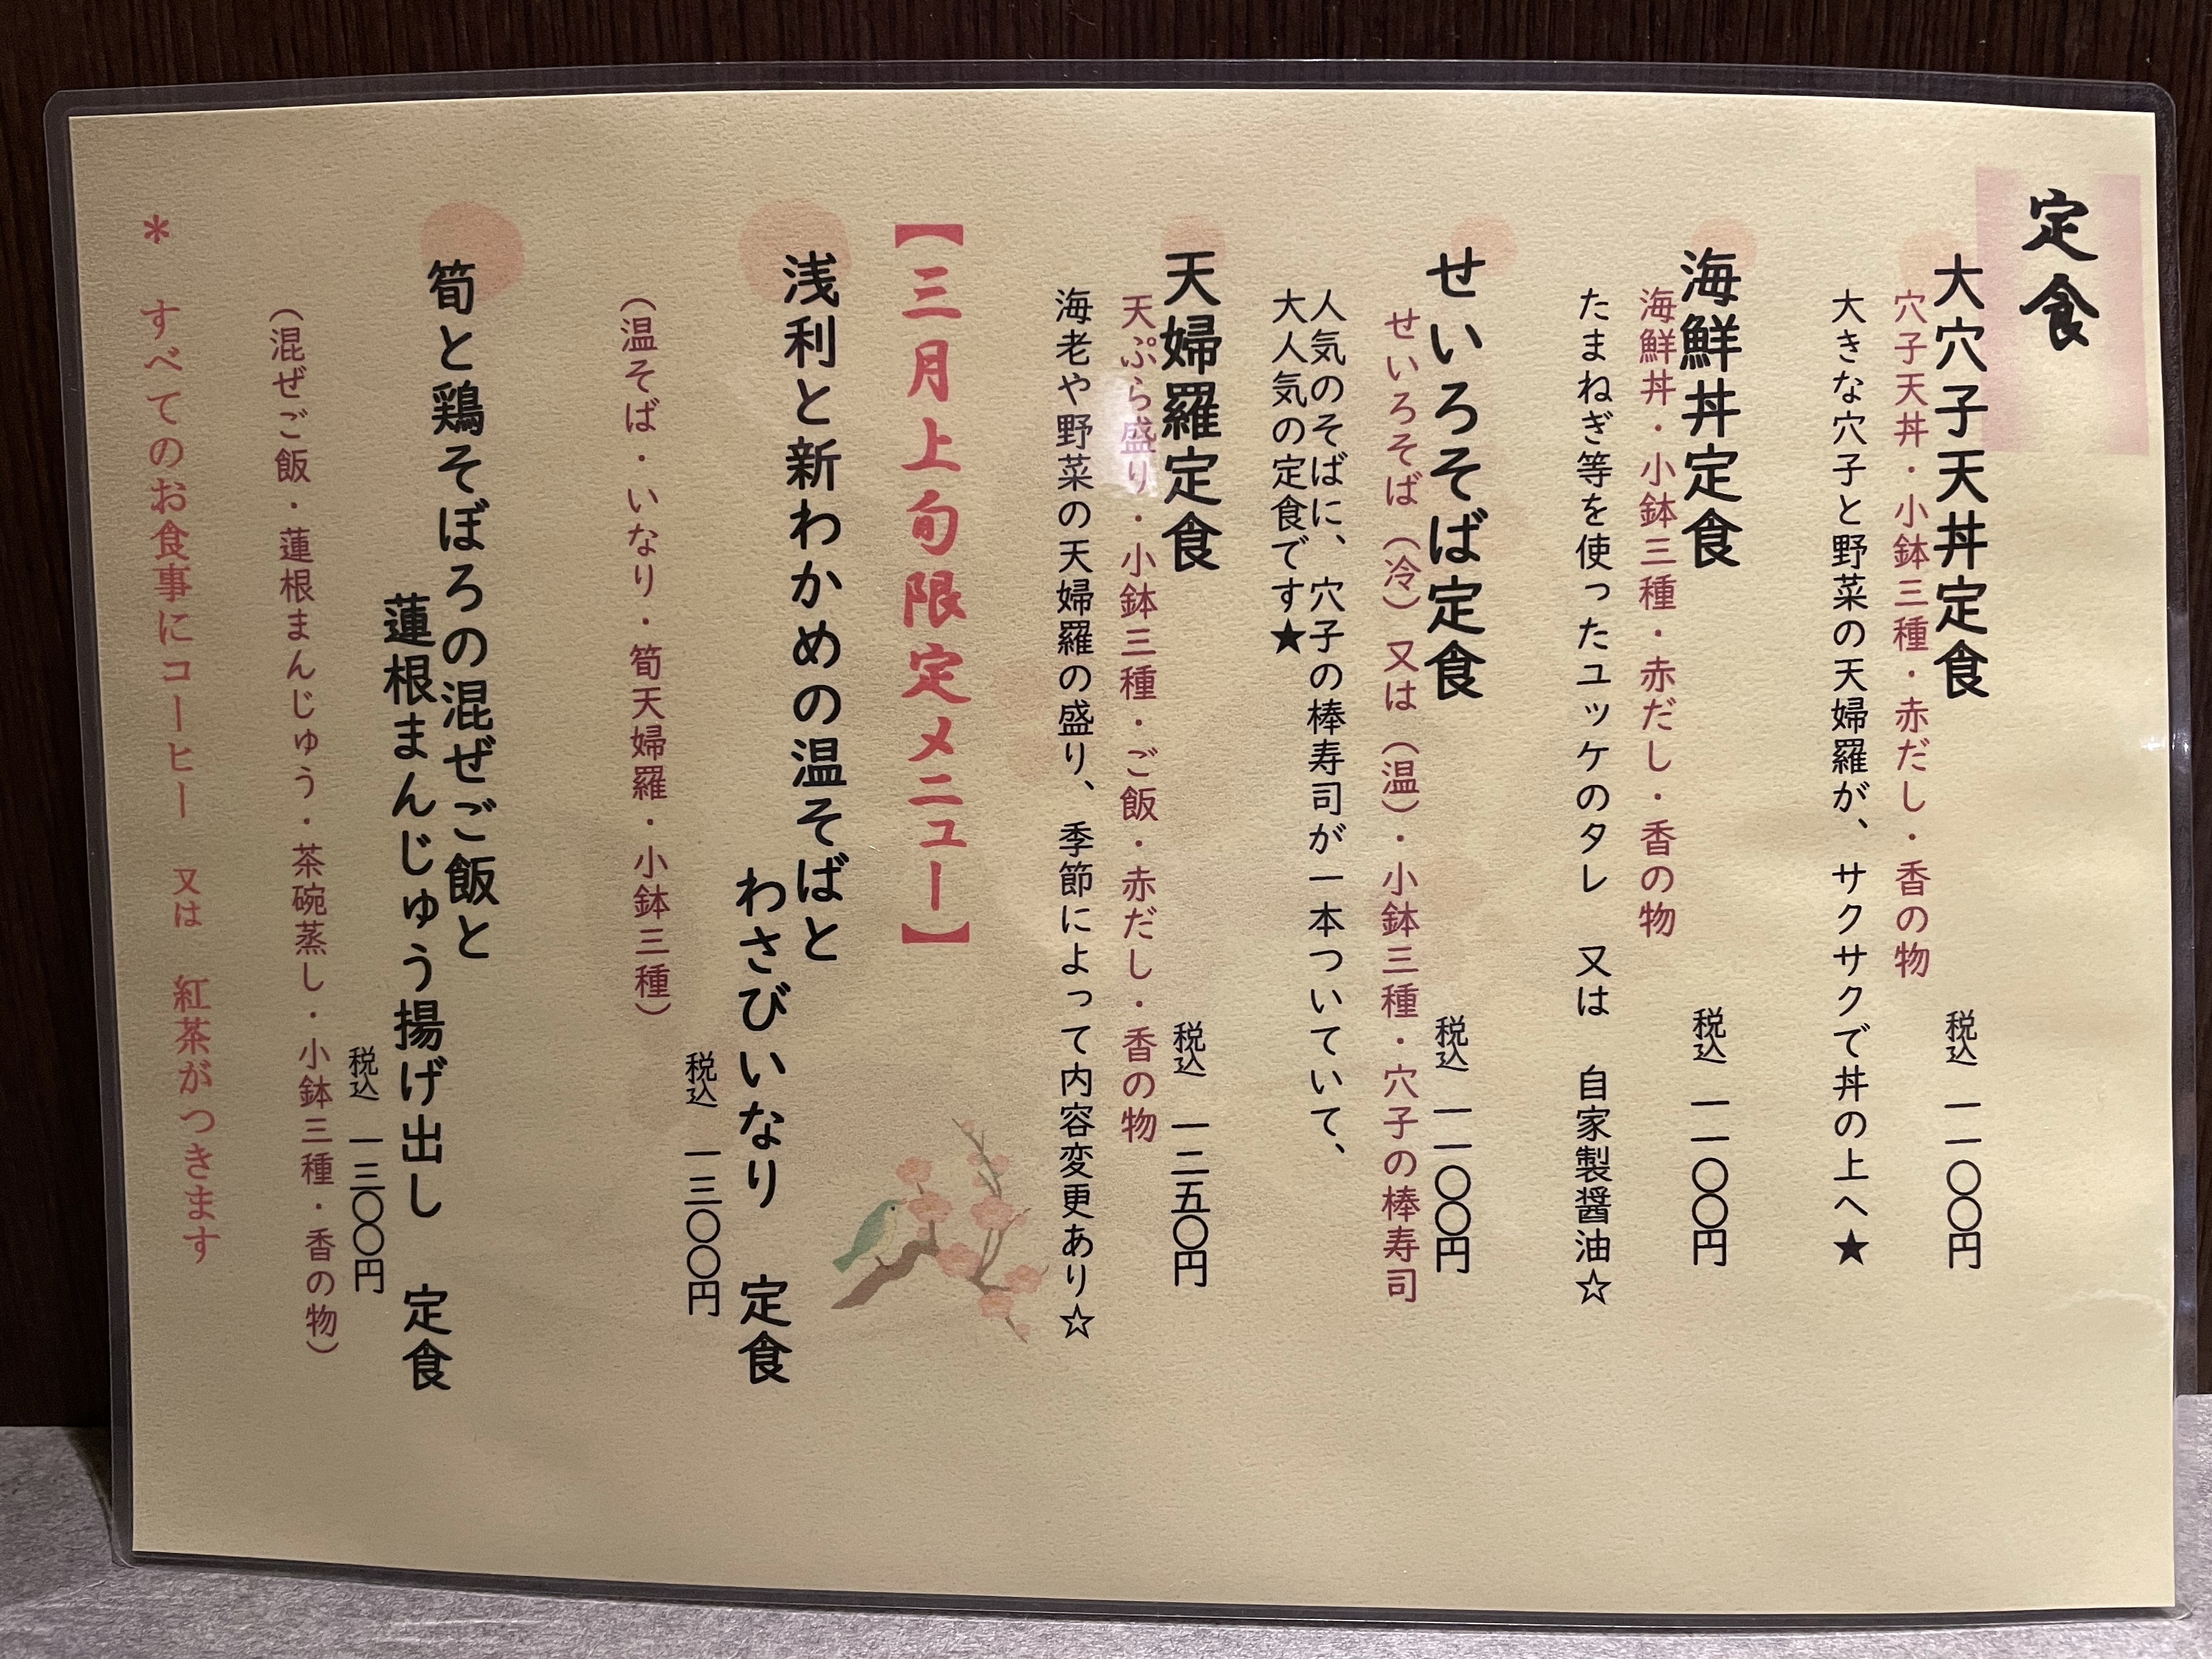 定食
大穴子天丼定食
税込 一一〇〇円
穴子天丼・小鉢三種・赤だし・香の物
大きな穴子と野菜の天婦羅が、サクサクで丼の上へ★
海鮮丼定食
税込 一一〇〇円
海鮮丼・小鉢三種・赤だし・香の物
たまねぎ等を使ったユッケのタレ 又は 自家製醤油☆
せいろそば定食
税込 一一〇〇円
せいろそば（冷）又は（温）・小鉢三種・穴子の棒寿司
人気のそばに、穴子の棒寿司が一本ついていて、
大人気の定食です★
天婦羅定食
税込 一二五〇円
天ぷら盛り・小鉢三種・ご飯・赤だし・香の物
海老や野菜の天婦羅の盛り、季節によって内容変更あり☆
【三月上旬限定メニュー】
浅利と新わかめの温そばと
わさびいなり 定食
税込 一三〇〇円
（温そば・いなり・筍天婦羅・小鉢三種）
筍と鶏そぼろの混ぜご飯と
蓮根まんじゅう揚げ出し 定食
税込 一三〇〇円
（混ぜご飯・蓮根まんじゅう・茶碗蒸し・小鉢三種・香の物）
＊ すべてのお食事にコーヒー 又は 紅茶がつきます